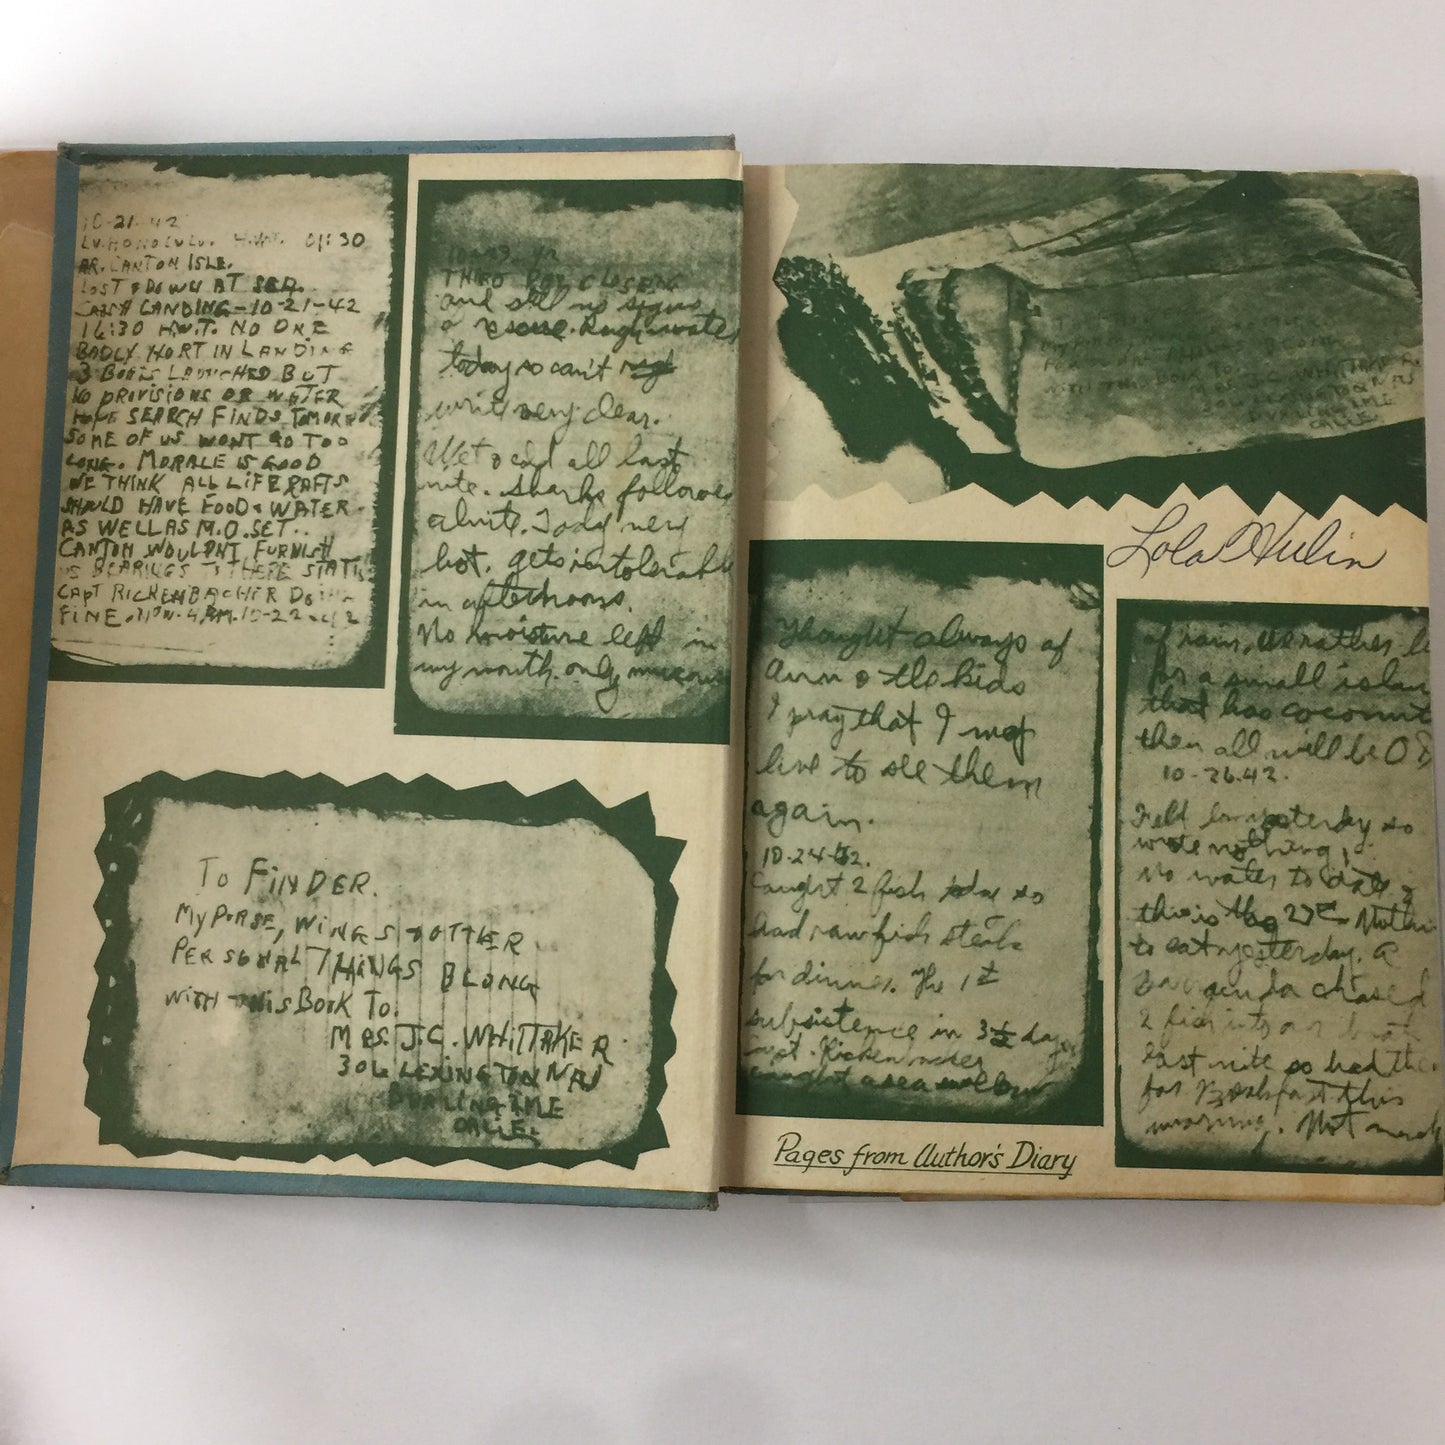 10-21-42
LV. HONOLULU. H.W.T. 01:30
AR. CANTON ISLE.
LOST & DOWN AT SEA.
CRASH LANDING - 10-21-42
16:30 H.W.T. NO ONE
BADLY HORT IN LANDING
3 BOATS LAUNCHED BUT
NO PROVISIONS OR WATER
HOPE SEARCH FINDS TOMORO
SOME OF US WONT GO TOO
LONG. MORALE IS GOOD
WE THINK ALL LIFE RAFTS
SHOULD HAVE FOOD & WATER
AS WELL AS M.O. SET..
CANTON WOULDNT FURNISH
US BEARINGS
CAPT RICKENBACHER DOING
FINE. 10-22-42
CLOSENG
and still no signs
a resque. Rough water
today so can't
write very clear.
Wet & cold all last
nite. Sharks followed
alnite. Today very
hot. gets intolerable
in afternoons.
No moisture left in
my mouth. only mucous
TO FINDER.
MY PURSE, WINGS & OTHER
PERSONAL THINGS BLONG
WITH THIS BOOK TO.
MRS. J.C. WHITTAKER
306 LEXINGTON WAY
BURLINGAME
CALIF.
WITH THIS BOOK TO.
MRS. J.C. WHITTAKER
306 LEXINGTON WAY
BURLINGAME
CALIF.
Lola Hulin
Thought always of
Ann & the kids
I pray that I may
live to see them
again.
10-24-42.
Caught 2 fish so
had raw fish steak
for dinner. The 1st
subsistence in 3½ days
Capt. Rickenbacher
caught a sea swallow
Pages from Author's Diary
of rain, or rather
for a small islan
that has coconut
then all will be O
10-26-42.
Feld low yesterday so
wrote nothing.
No water to date &
this is the 27th Nothin
to eat yesterday. A
Barracuda chased
2 fish into our boat
last nite so had the
for Breakfast this
morning. Not much